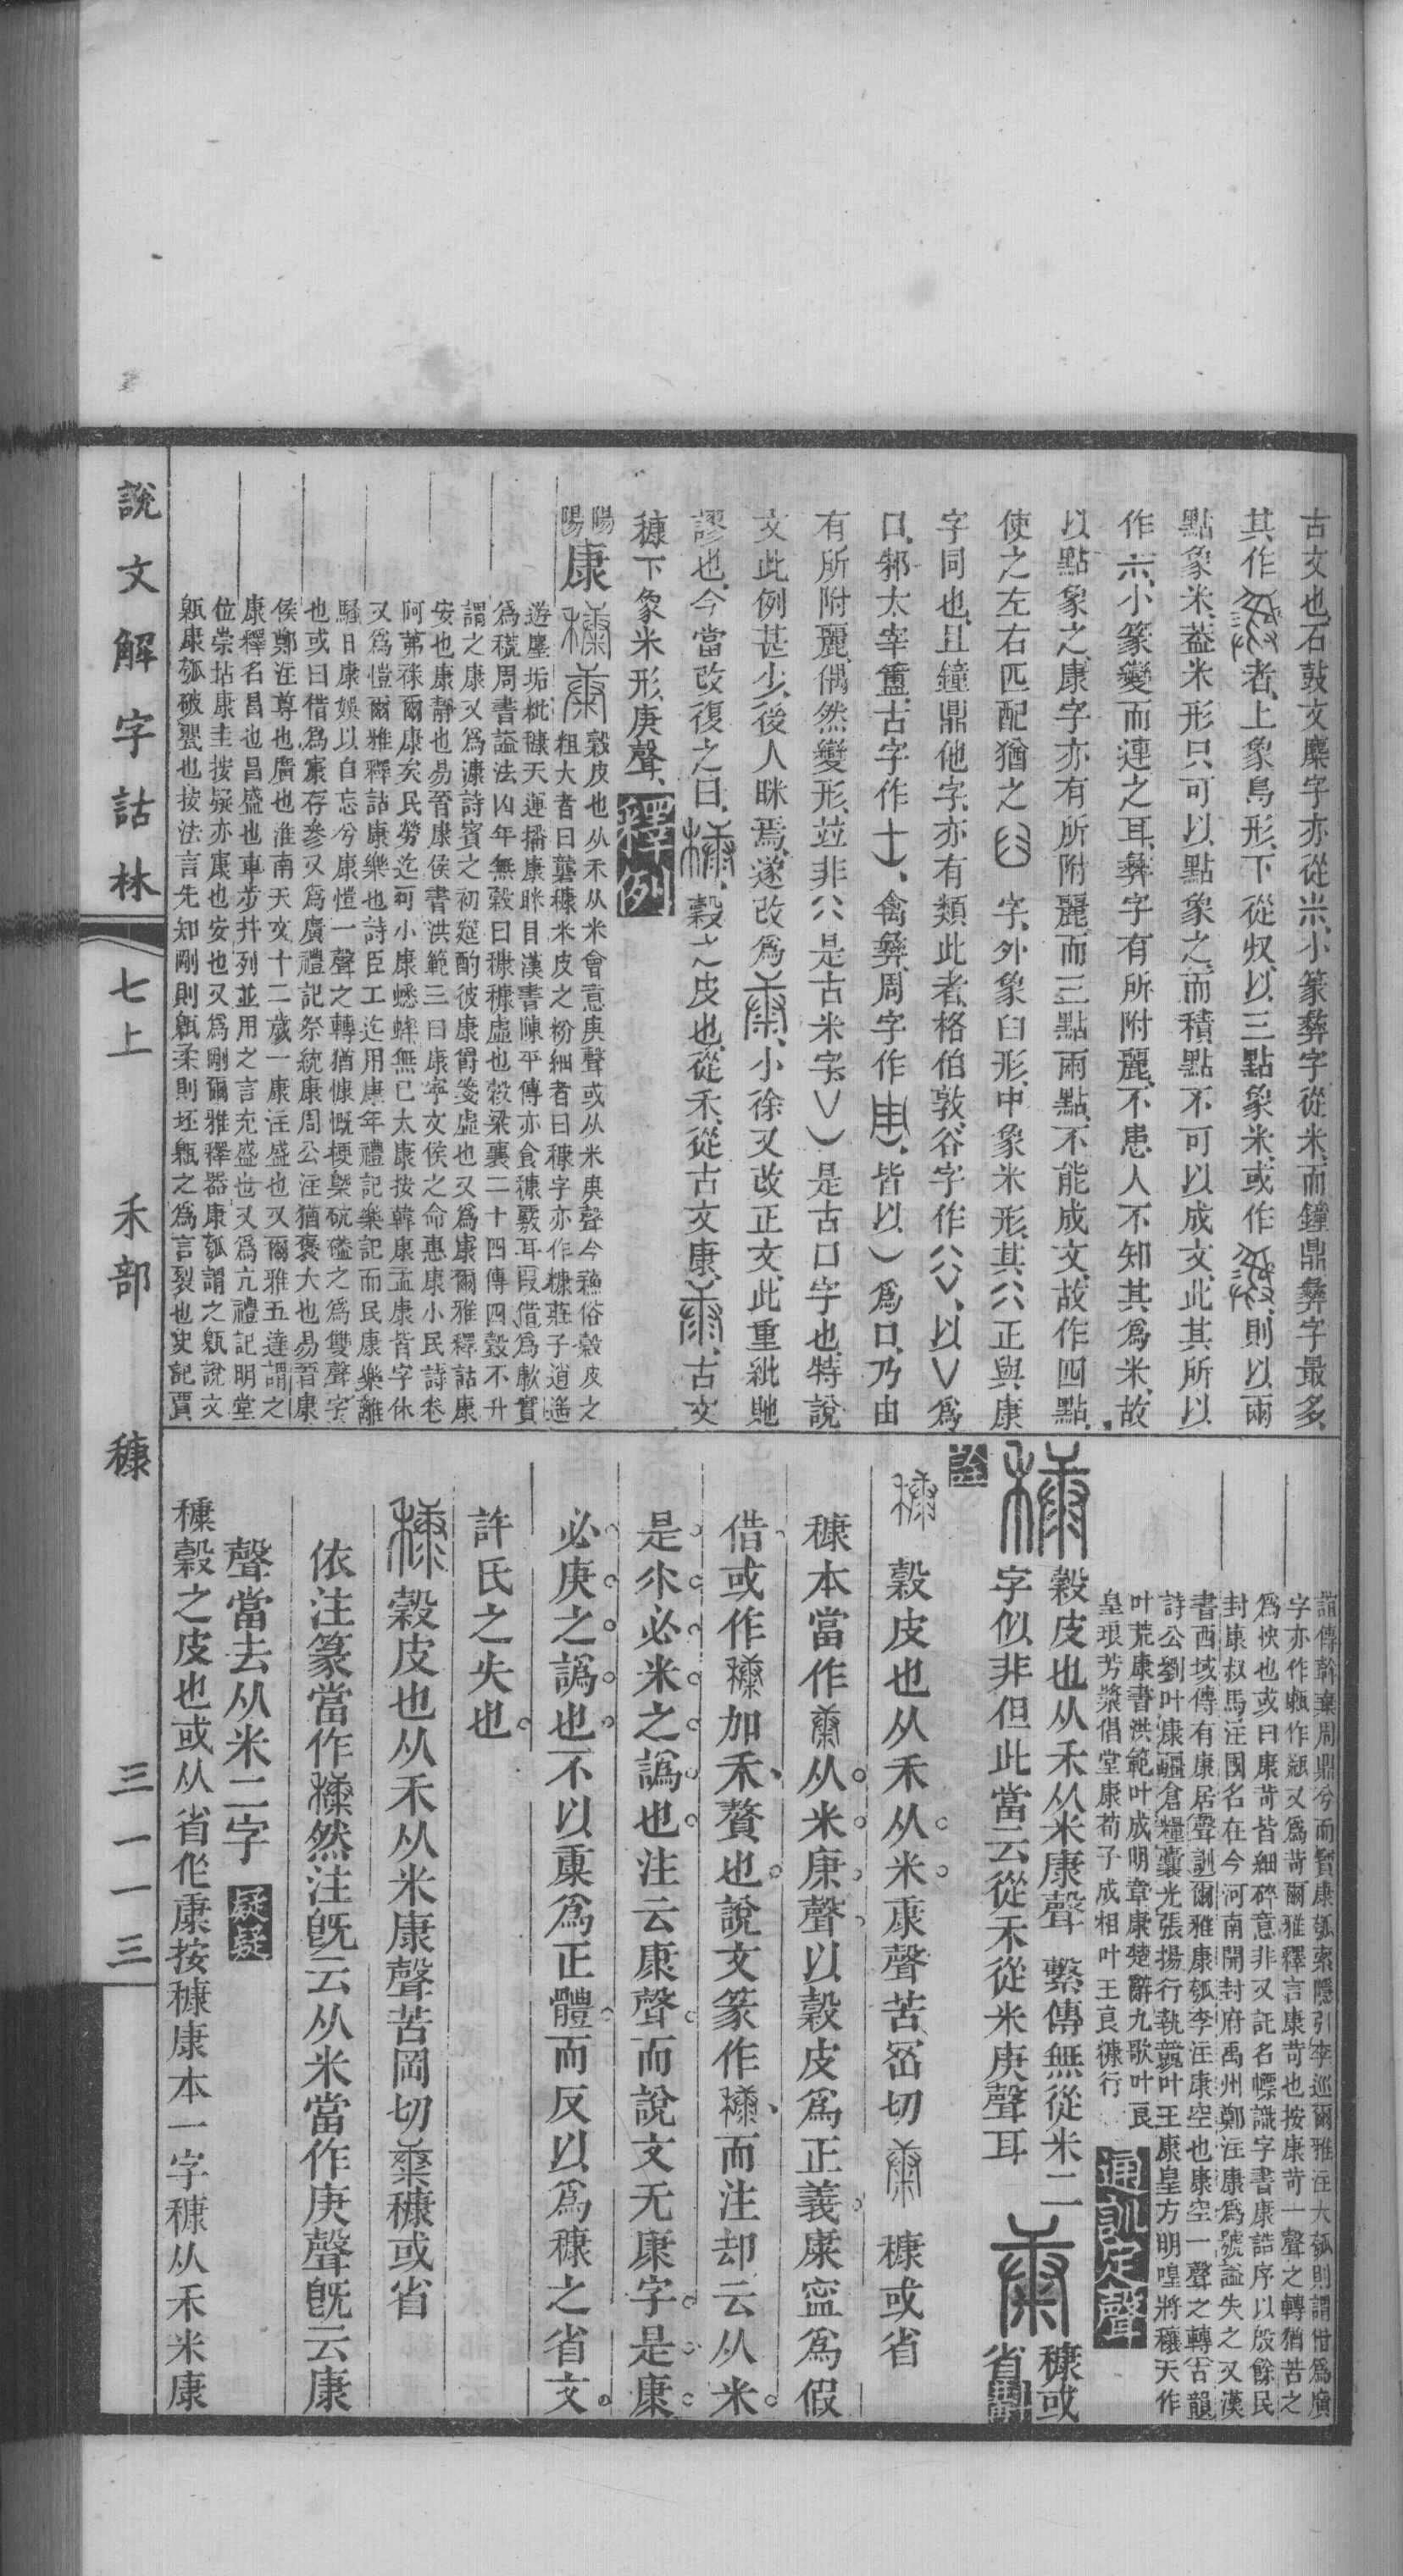 古文也、石鼓文麋字亦從米、小篆彝字從米、而鐘鼎彝字最多、
其作者、上象鳥形、下從収、以三點象米、或作、則以兩
點象米、葢米形只可以點象之、而積點不可以成文、此其所以
作、小篆變而連之耳、彝字有所附麗、不患人不知其爲米、故
以點象之、康字亦有所附麗、而三點兩點、不能成文、故作四點、
使之左右匹配、猶之字、外象臼形、中象米形、其正與康
字同也、且鐘鼎他字、亦有類此者、格伯敦、谷字作、以爲
口、邾太宰簠、古字作、禽彝、周字作、皆以爲口、乃由
有所附麗、偶然變形、竝非是古米字、是古口字也、特說
文此例甚少、後人眯焉、遂改爲、小徐又改正文、此重紕貤
謬也、今當改復之曰、穀之皮也、從禾、從古文康、古文
穅下象米形、庚聲、釋例
陽陽康穀皮也从禾从米會意庚聲或从米庚聲今蘇俗穀皮之
粗大者曰礱穅米皮之粉細者曰穅字亦作糠莊子逍遙
遊塵垢粃穅天運播康眯目漢書陳平傳亦食穅覈耳叚借爲㱂實
爲㡆周書謚法凶年無穀曰穅穅虛也穀梁襄二十四傳四穀不升
謂之康又爲漮詩賓之初筵酌彼康爵箋虛也又爲康爾雅釋詁康
安也康靜也易晉康侯書洪範三曰康寧文侯之命惠康小民詩卷
阿茀祿爾康矣民勞迄可小康蟋蟀無已太康按韓康孟康皆字休
又爲愷爾雅釋詁康樂也詩臣工迄用康年禮記樂記而民康樂離
騷日康娛以自忘兮康愷一聲之轉猶慷慨梗槩硫礚之爲雙聲字
也或曰借爲㝩存參又爲廣禮記祭統康周公注猶襃大也易晉康
侯鄭注尊也廣也淮南天文十二歲一康注盛也又爾雅五達謂之
康釋名昌也昌盛也車步幷列並用之言充盛也又爲亢禮記明堂
位崇坫康圭按疑亦康也安也又爲剛爾雅釋器康瓠謂之甈說文
甈康瓠破罌也按法言先知剛則甈柔則坯甈之爲言裂也史記賈
誼傳斡棄周鼎兮而寶康瓠索隱引李巡爾雅注大瓠則謂借爲廣
字亦作甈作瓳又爲苛爾雅釋言康苛也按康苛一聲之轉猶苦之
爲快也或曰康苛皆細碎意非又託名幖識字書康誥序以殷餘民
封康叔馬注國名在今河南開封府禹州鄭注康爲號謚失之又漢
書西域傳有康居聲訓爾雅康瓠李注康空也康空一聲之轉古韻
詩公劉叶康疆倉糧囊光張揚行執競叶王康皇方明喤將穰天作
叶荒康書洪範叶成明章康楚辭九歌叶良
皇琅芳漿倡堂康荀子成相叶王良穅行通訓定聲
穀皮也从禾从米康聲　繫傳無從米二
字似非但此當云從禾從米庚聲耳穅或
省斠
詮
穀皮也从禾从米庚聲苦岡切　穅或省
穅本當作从米庚聲以穀皮爲正義康寍爲假
借或作加禾贅也說文篆作而注却云从米
是尒必米之譌也注云康聲而說文无康字是康
必庚之譌也不以康爲正體而反以爲穅之省文
許氏之失也
穀皮也从禾从米康聲苦岡切穅或省
依注篆當作然注旣云从米當作庚聲旣云康
聲當去从米二字　疑疑
穅穀之皮也或从省作康按穅康本一字穅从禾米康
說文解字詁林　七上　禾部　穅　三一一三